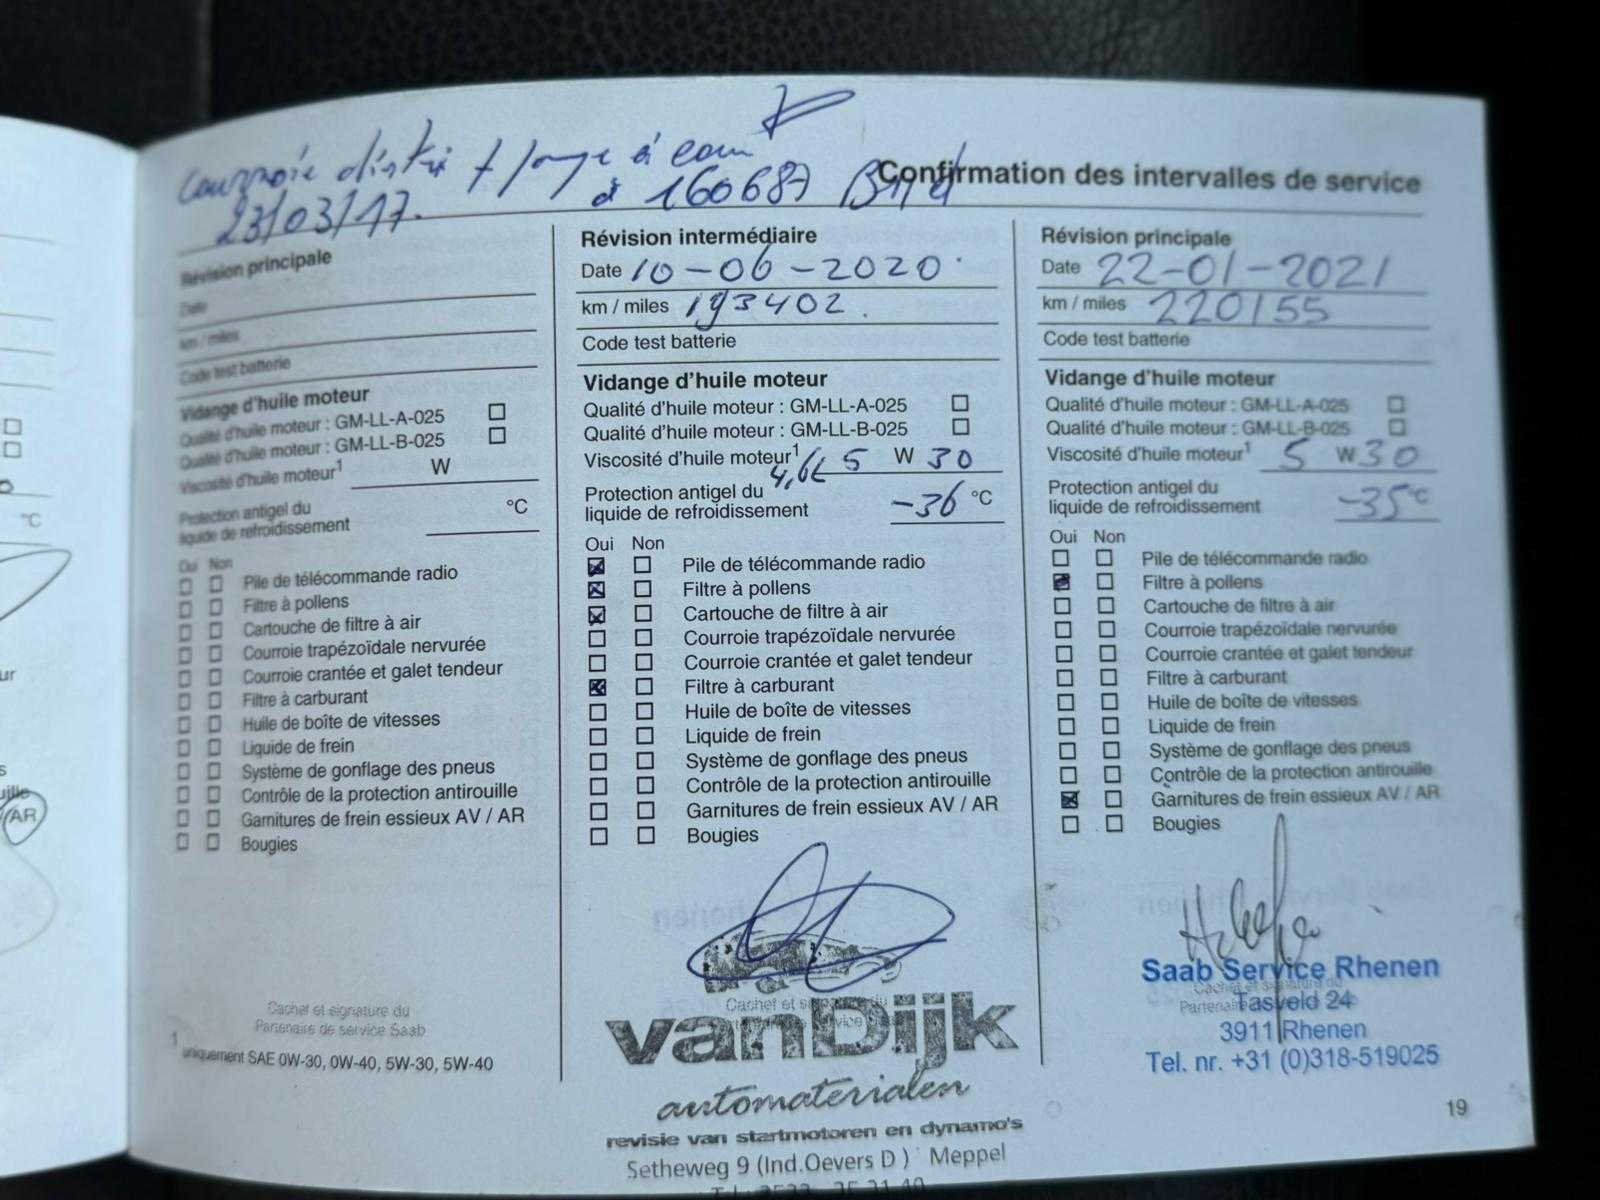 Courroie distri + pompe à eau
23/03/17. à 160687
Confirmation des intervalles de service
Révision principale
Date
km / miles
Code test batterie
Vidange d'huile moteur
Qualité d'huile moteur : GM-LL-A-025
Qualité d'huile moteur : GM-LL-B-025
Viscosité d'huile moteur¹ W
Protection antigel du
liquide de refroidissement °C
Oui Non
Pile de télécommande radio
Filtre à pollens
Cartouche de filtre à air
Courroie trapézoïdale nervurée
Courroie crantée et galet tendeur
Filtre à carburant
Huile de boîte de vitesses
Liquide de frein
Système de gonflage des pneus
Contrôle de la protection antirouille
Garnitures de frein essieux AV / AR
Bougies
Cachet et signature du
Partenaire de service Saab
1 uniquement SAE 0W-30, 0W-40, 5W-30, 5W-40
Révision intermédiaire
Date 10-06-2020
km / miles 193402.
Code test batterie
Vidange d'huile moteur
Qualité d'huile moteur : GM-LL-A-025
Qualité d'huile moteur : GM-LL-B-025
Viscosité d'huile moteur¹ 5 W 30
4,6L
Protection antigel du
liquide de refroidissement -36 °C
Oui Non
Pile de télécommande radio
Filtre à pollens
Cartouche de filtre à air
Courroie trapézoïdale nervurée
Courroie crantée et galet tendeur
Filtre à carburant
Huile de boîte de vitesses
Liquide de frein
Système de gonflage des pneus
Contrôle de la protection antirouille
Garnitures de frein essieux AV / AR
Bougies
Cachet et signature du
vanDijk
automaterialen
revisie van startmotoren en dynamo's
Setheweg 9 (Ind.Oevers D ) Meppel
Révision principale
Date 22-01-2021
km / miles 220155
Code test batterie
Vidange d'huile moteur
Qualité d'huile moteur : GM-LL-A-025
Qualité d'huile moteur : GM-LL-B-025
Viscosité d'huile moteur¹ 5 W 30
Protection antigel du
liquide de refroidissement -35 °C
Oui Non
Pile de télécommande radio
Filtre à pollens
Cartouche de filtre à air
Courroie trapézoïdale nervurée
Courroie crantée et galet tendeur
Filtre à carburant
Huile de boîte de vitesses
Liquide de frein
Système de gonflage des pneus
Contrôle de la protection antirouille
Garnitures de frein essieux AV / AR
Bougies
Saab Service Rhenen
Tasveld 24
3911 Rhenen
Tel. nr. +31 (0)318-519025
19
°C
AR